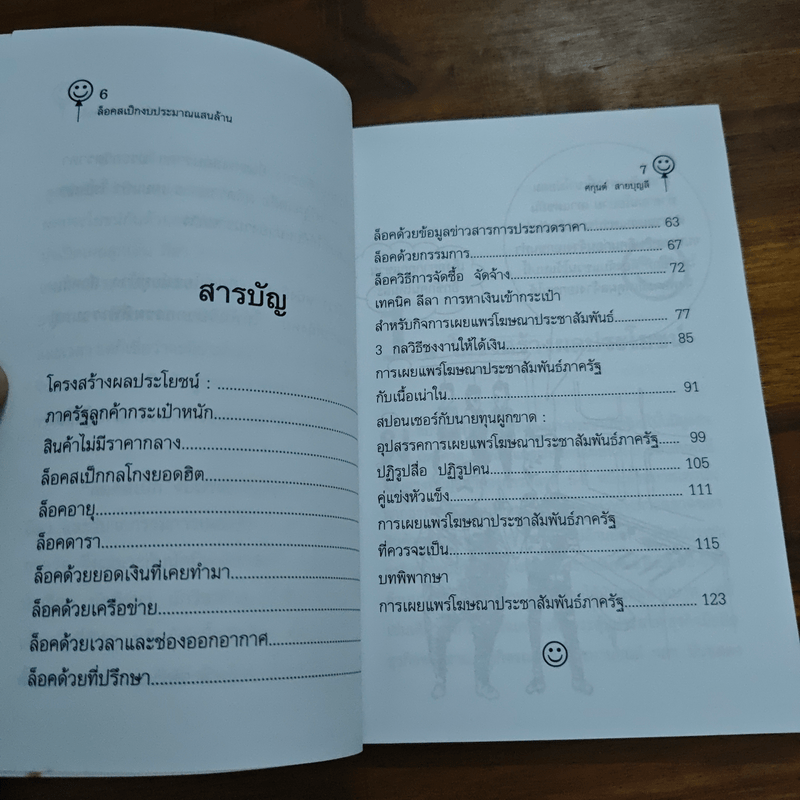 6
ล็อคสเป็กงบประมาณแสนล้าน
สารบัญ
โครงสร้างผลประโยชน์ : ....................
ภาครัฐลูกค้ากระเป๋าหนัก....................
สินค้าไม่มีราคากลาง....................
ล็อคสเป็กกลโกงยอดฮิต....................
ล็อคอายุ....................
ล็อคดารา....................
ล็อคด้วยยอดเงินที่เคยทำมา....................
ล็อคด้วยเครือข่าย....................
ล็อคด้วยเวลาและช่องออกอากาศ....................
ล็อคด้วยที่ปรึกษา....................
7
ศกุนต์ สายบุญลี
ล็อคด้วยข้อมูลข่าวสารการประกวดราคา.................... 63
ล็อคด้วยกรรมการ.................... 67
ล็อควิธีการจัดซื้อ จัดจ้าง.................... 72
เทคนิค ลีลา การหาเงินเข้ากระเป๋า
สำหรับกิจการเผยแพร่โฆษณาประชาสัมพันธ์.................... 77
3 กลวิธีชงงานให้ได้เงิน.................... 85
การเผยแพร่โฆษณาประชาสัมพันธ์ภาครัฐ
กับเนื้อเน่าใน.................... 91
สปอนเซอร์กับนายทุนผูกขาด :
อุปสรรคการเผยแพร่โฆษณาประชาสัมพันธ์ภาครัฐ...... 99
ปฏิรูปสื่อ ปฏิรูปคน.................... 105
คู่แข่งหัวแข็ง.................... 111
การเผยแพร่โฆษณาประชาสัมพันธ์ภาครัฐ
ที่ควรจะเป็น.................... 115
บทพิพากษา
การเผยแพร่โฆษณาประชาสัมพันธ์ภาครัฐ.................... 123